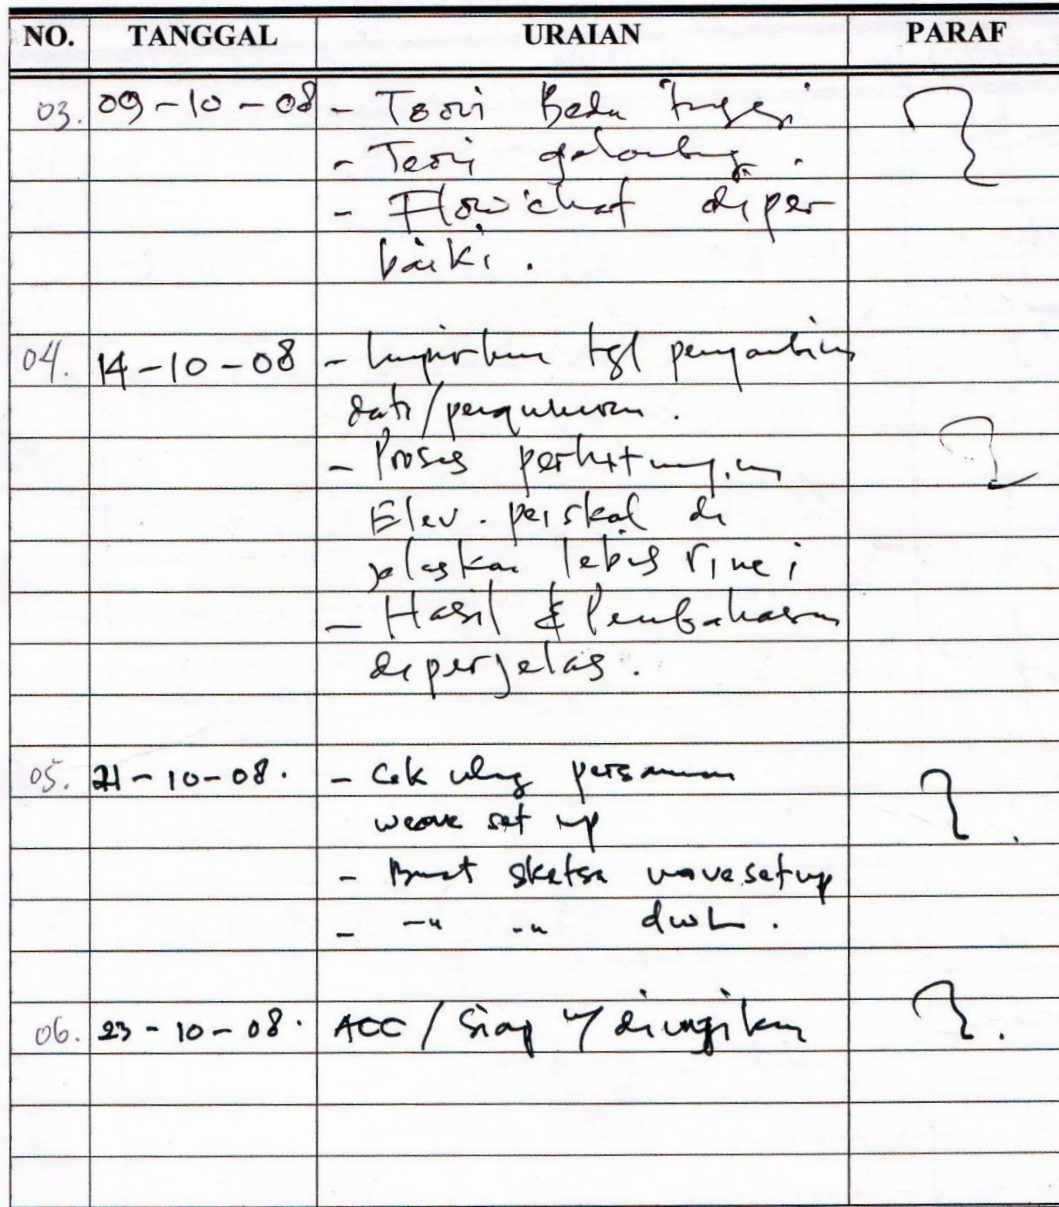 NO. TANGGAL URAIAN PARAF
03. 09-10-08 - Teori Beda tinggi
- Teori gelombang.
- Flowchat diper
baiki.
04. 14-10-08 - Lampirkan tgl pengambilan
data/pengukuran.
- Proses perhitungan
Elev. di
jelaskan lebih rinci
- Hasil & Pembahasan
diperjelas.
05. 21-10-08. - Cek ulang persamaan
wave set up
- Buat sketsa wave setup
- -"- -"- dwl.
06. 23-10-08. ACC / Siap u/ diujikan